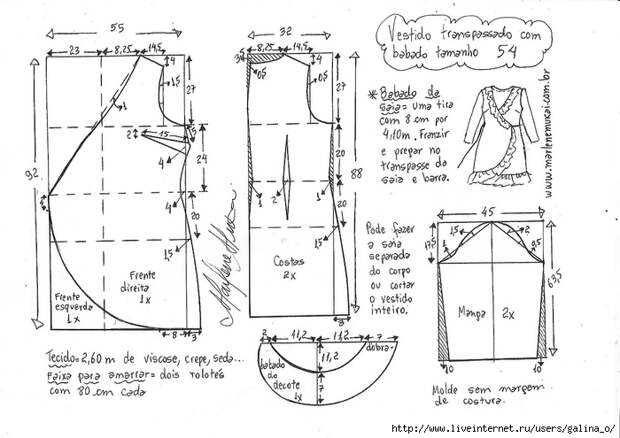 Vestido transpassado com
babado tamanho 54
55
23
8,25
14,5
4
1,5
27
1
15
4
24
92
4
20
1,5
Frente
direita
1x
Frente
esquerda
1x
8
3
32
8,25
14,5
4
0,5
0,5
27
1
20
88
1
2
1
20
1,5
Costas
2x
3
Marlene Mukai
* Babado da
saia = uma tira
com 8 cm por
4,10m. Franzir
e prepar no
transpasse da
saia e barra.
www.marlenemukai.com.br
Pode fazer
a saia
separada
do corpo
ou cortar
o vestido
inteiro.
45
1,5
2
0,5
17,5
63,5
Manga
2x
10
10
Molde sem margem
de costura.
2
11,2
11,2
7
11,2
dobra
7
babado
do
decote
1x
Tecido = 2,60 m de viscose, crepe, seda...
Faixa para amarrar = dois rolotês
com 80 cm cada
http://www.liveinternet.ru/users/galina_o/